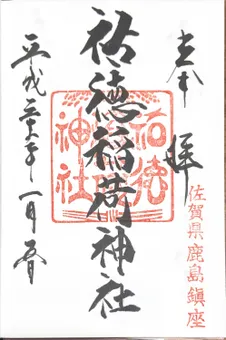 奉拝
佐賀県鹿島鎮座
祐徳稲荷神社
祐徳
神社
平成三十年一月五日